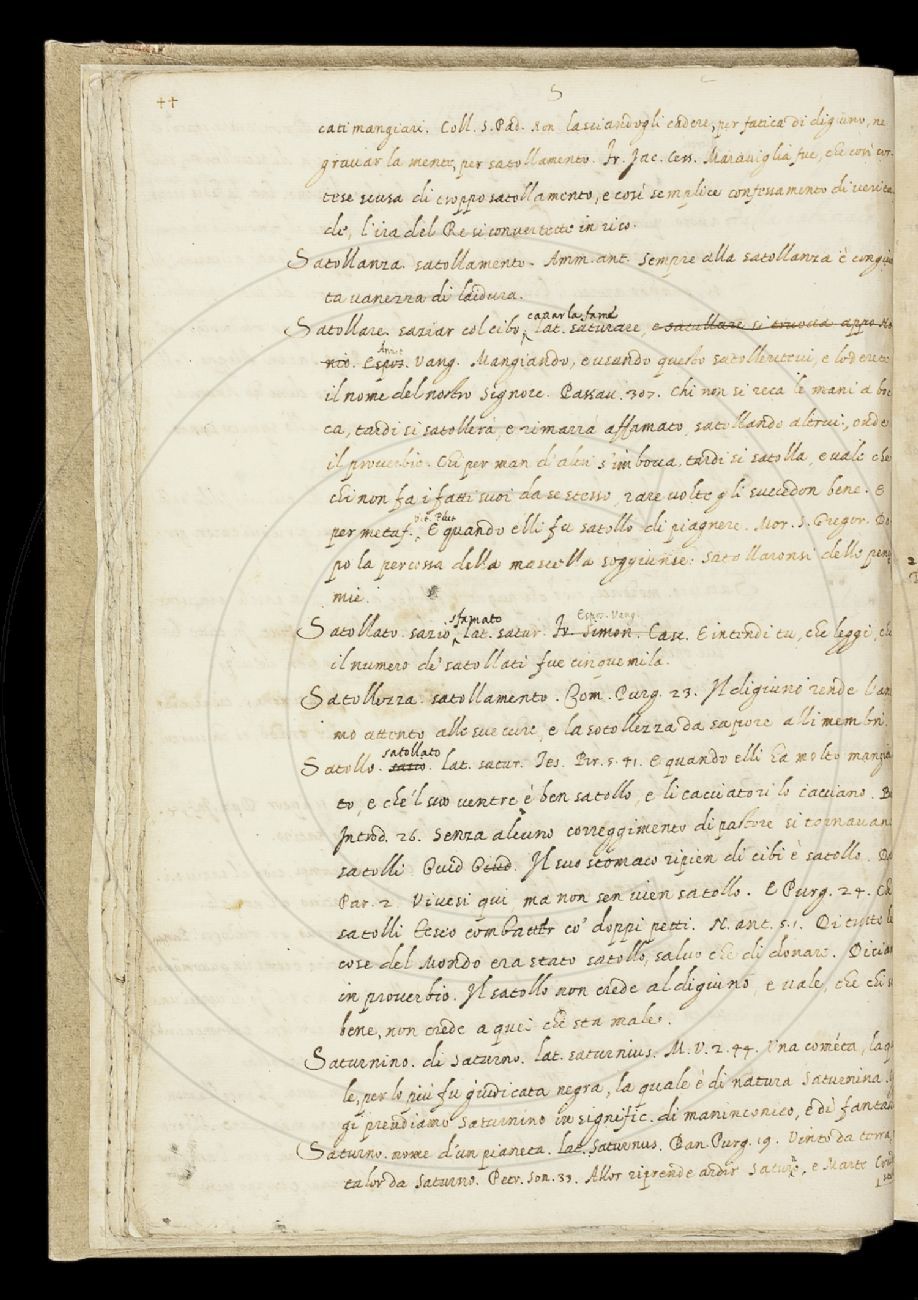 S
++
cati mangiari. Coll. S. Pad. son lasciandogli cadere, per fatica di digiuno, ne
gravar la mente, per satollamento. Fr. Jac. Cess. Maraviglia fue, che così cor-
tese scusa di troppo satollamento, e così semplice confessamento di verita
de, l'ira del Re si convertette in riso.
Satollanza. satollamento. Amm. ant. Sempre alla satollanza è congiun
ta vanezza di laidura.
cavar la fame
Satollare. saziar col cibo, lat. saturare, e satullare si truova appo
Ann.
Espos. Vang. Mangiando, e usando questo satolleretevi, e loderete
il nome del nostro Signore. Passav. 307. Chi non si reca le mani a boc
ca, tardi si satollerà, e rimarrà affamato, satollando altrui, onde
il proverbio. Chi per man d'altri s'imbocca, tardi si satolla, e vale che
chi non fa i fatti suoi da se stesso, rare volte gli succedon bene. E
v. t. Plut
per metaf. E quando elli fu satollo di piagnere. Mor. S. Gregor. Do
po la percossa della mascella soggiunse: Satollaronsi delle pene
mie.
sfamato Espos. Vang.
Satollato. sazio, lat. satur. Fr. Simon. Casc. E intendi tu, che leggi, che
il numero de' satollati fue cinquemila.
Satollezza. satollamento. Com. Purg. 23. Il digiuno rende l'ani
mo attento alle sue cure, e la satollezza da sapore alli membri.
satollato
Satollo. sazio. lat. satur. Tes. Br. 5. 41. E quando elli ha molto mangia
to, e che'l suo ventre è ben satollo, e li cacciatori lo cacciano. Bo
Introd. 26. Senza alcuno correggimento di pastore si tornavan
satolli Guid Giud. Il suo stomaco ripien di cibi è satollo. Da
Par. 2. Vivesi qui ma non sen vien satollo. E Purg. 24. Che
satolli Teseo combatter co' doppi petti. N. ant. 51. Di tutte le
cose del Mondo era stato satollo, salvo che di donare. Dician
in proverbio. Il satollo non crede al digiuno, e vale, che chi s
bene, non crede a quei che sta male.
Saturnino. di Saturno. lat. saturnius. M. V. 2. 44. Una cometa, la q
le, per lo più fu giudicata negra, la quale è di natura Saturnina.
gi prendiamo Saturnino in signific. di maninconico, e di fantas
Saturno. nome d'un pianeta. lat. Saturnus. Dan. Purg. 19. Vinto da terra
talor da Saturno. Petr. Son. 33. Allor riprende ardir Saturno, e Marte